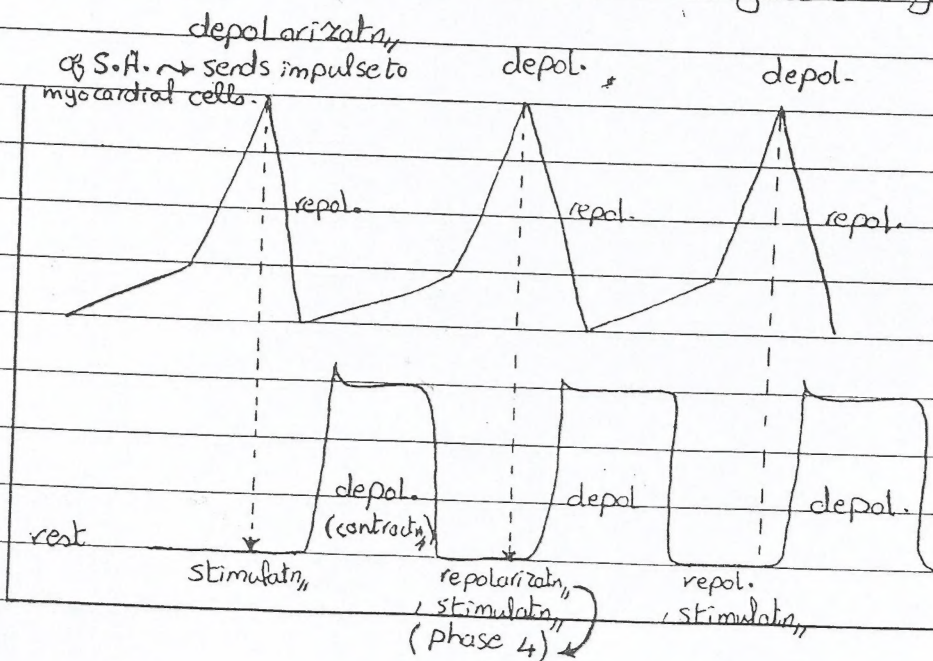 depolarizatn,,
of S.A. ⇝ sends impulse to
myocardial cells.
depol.
depol-
repol.
repol.
repol.
depol.
(contractn,,)
depol
depol.
rest
Stimulatn,,
repolarizatn,,
, stimulatn,,
(phase 4)
repol.
, stimulatn,,